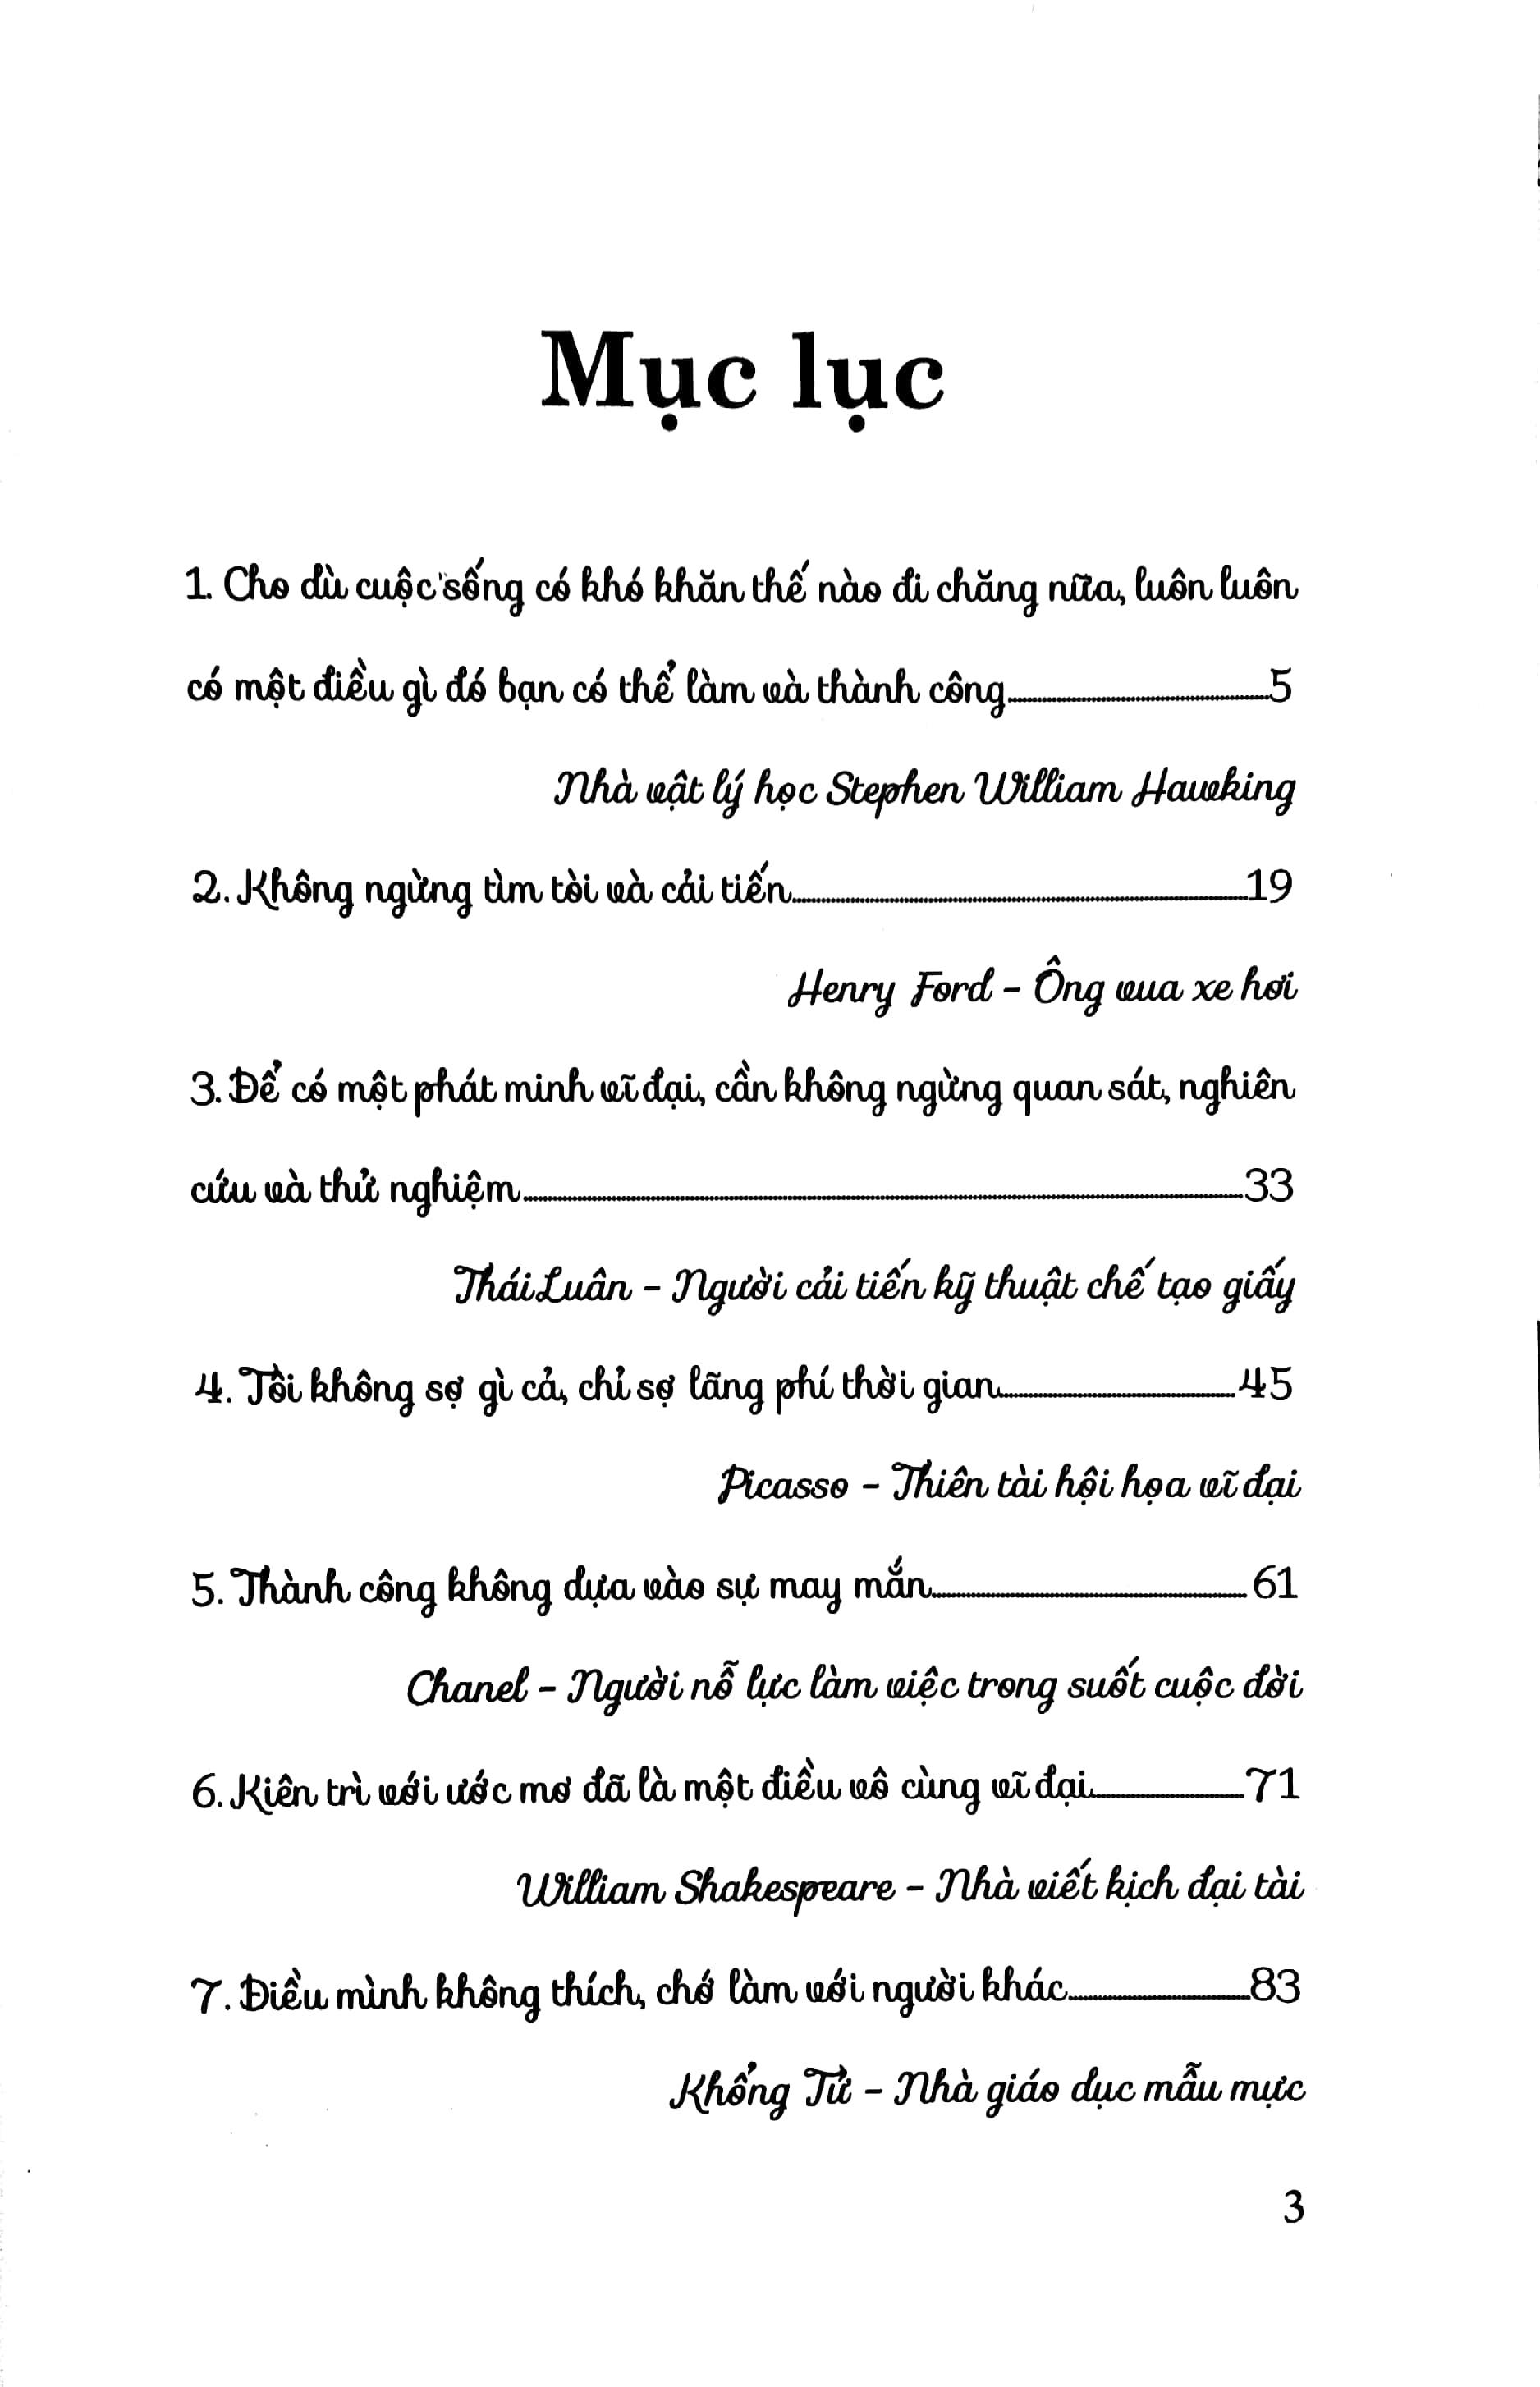 Mục lục
1. Cho dù cuộc sống có khó khăn thế nào đi chăng nữa, luôn luôn
có một điều gì đó bạn có thể làm và thành công..........5
Nhà vật lý học Stephen William Hawking
2. Không ngừng tìm tòi và cải tiến..........19
Henry Ford - Ông vua xe hơi
3. Để có một phát minh vĩ đại, cần không ngừng quan sát, nghiên
cứu và thử nghiệm..........33
Thái Luân - Người cải tiến kỹ thuật chế tạo giấy
4. Tôi không sợ gì cả, chỉ sợ lãng phí thời gian..........45
Picasso - Thiên tài hội họa vĩ đại
5. Thành công không dựa vào sự may mắn..........61
Chanel - Người nỗ lực làm việc trong suốt cuộc đời
6. Kiên trì với ước mơ đã là một điều vô cùng vĩ đại..........71
William Shakespeare - Nhà viết kịch đại tài
7. Điều mình không thích, chớ làm với người khác..........83
Khổng Tử - Nhà giáo dục mẫu mực
3